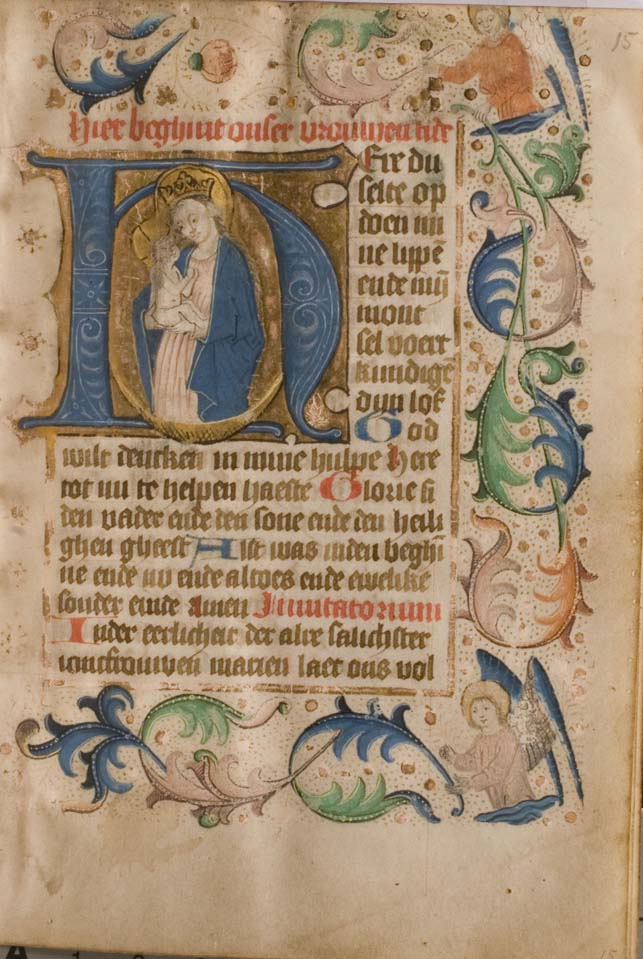 15
Hier beghint onser vrouwen tide
HEre du
selte op
doen mi
ne lippē
ende mijn
mont
sel voert
kundigē
dyn lof
God
wilt dencken in mine hulpe here
tot mi te helpen haeste Glorie si
den vader ende den sone ende den heili
ghen gheest Alst was inden beghī
ne ende nv ende altoes ende ewelike
sonder einde amen Inuitatorium
Inder eerlicheit der alre salichster
ioncfrouwen marien laet ons vol
15